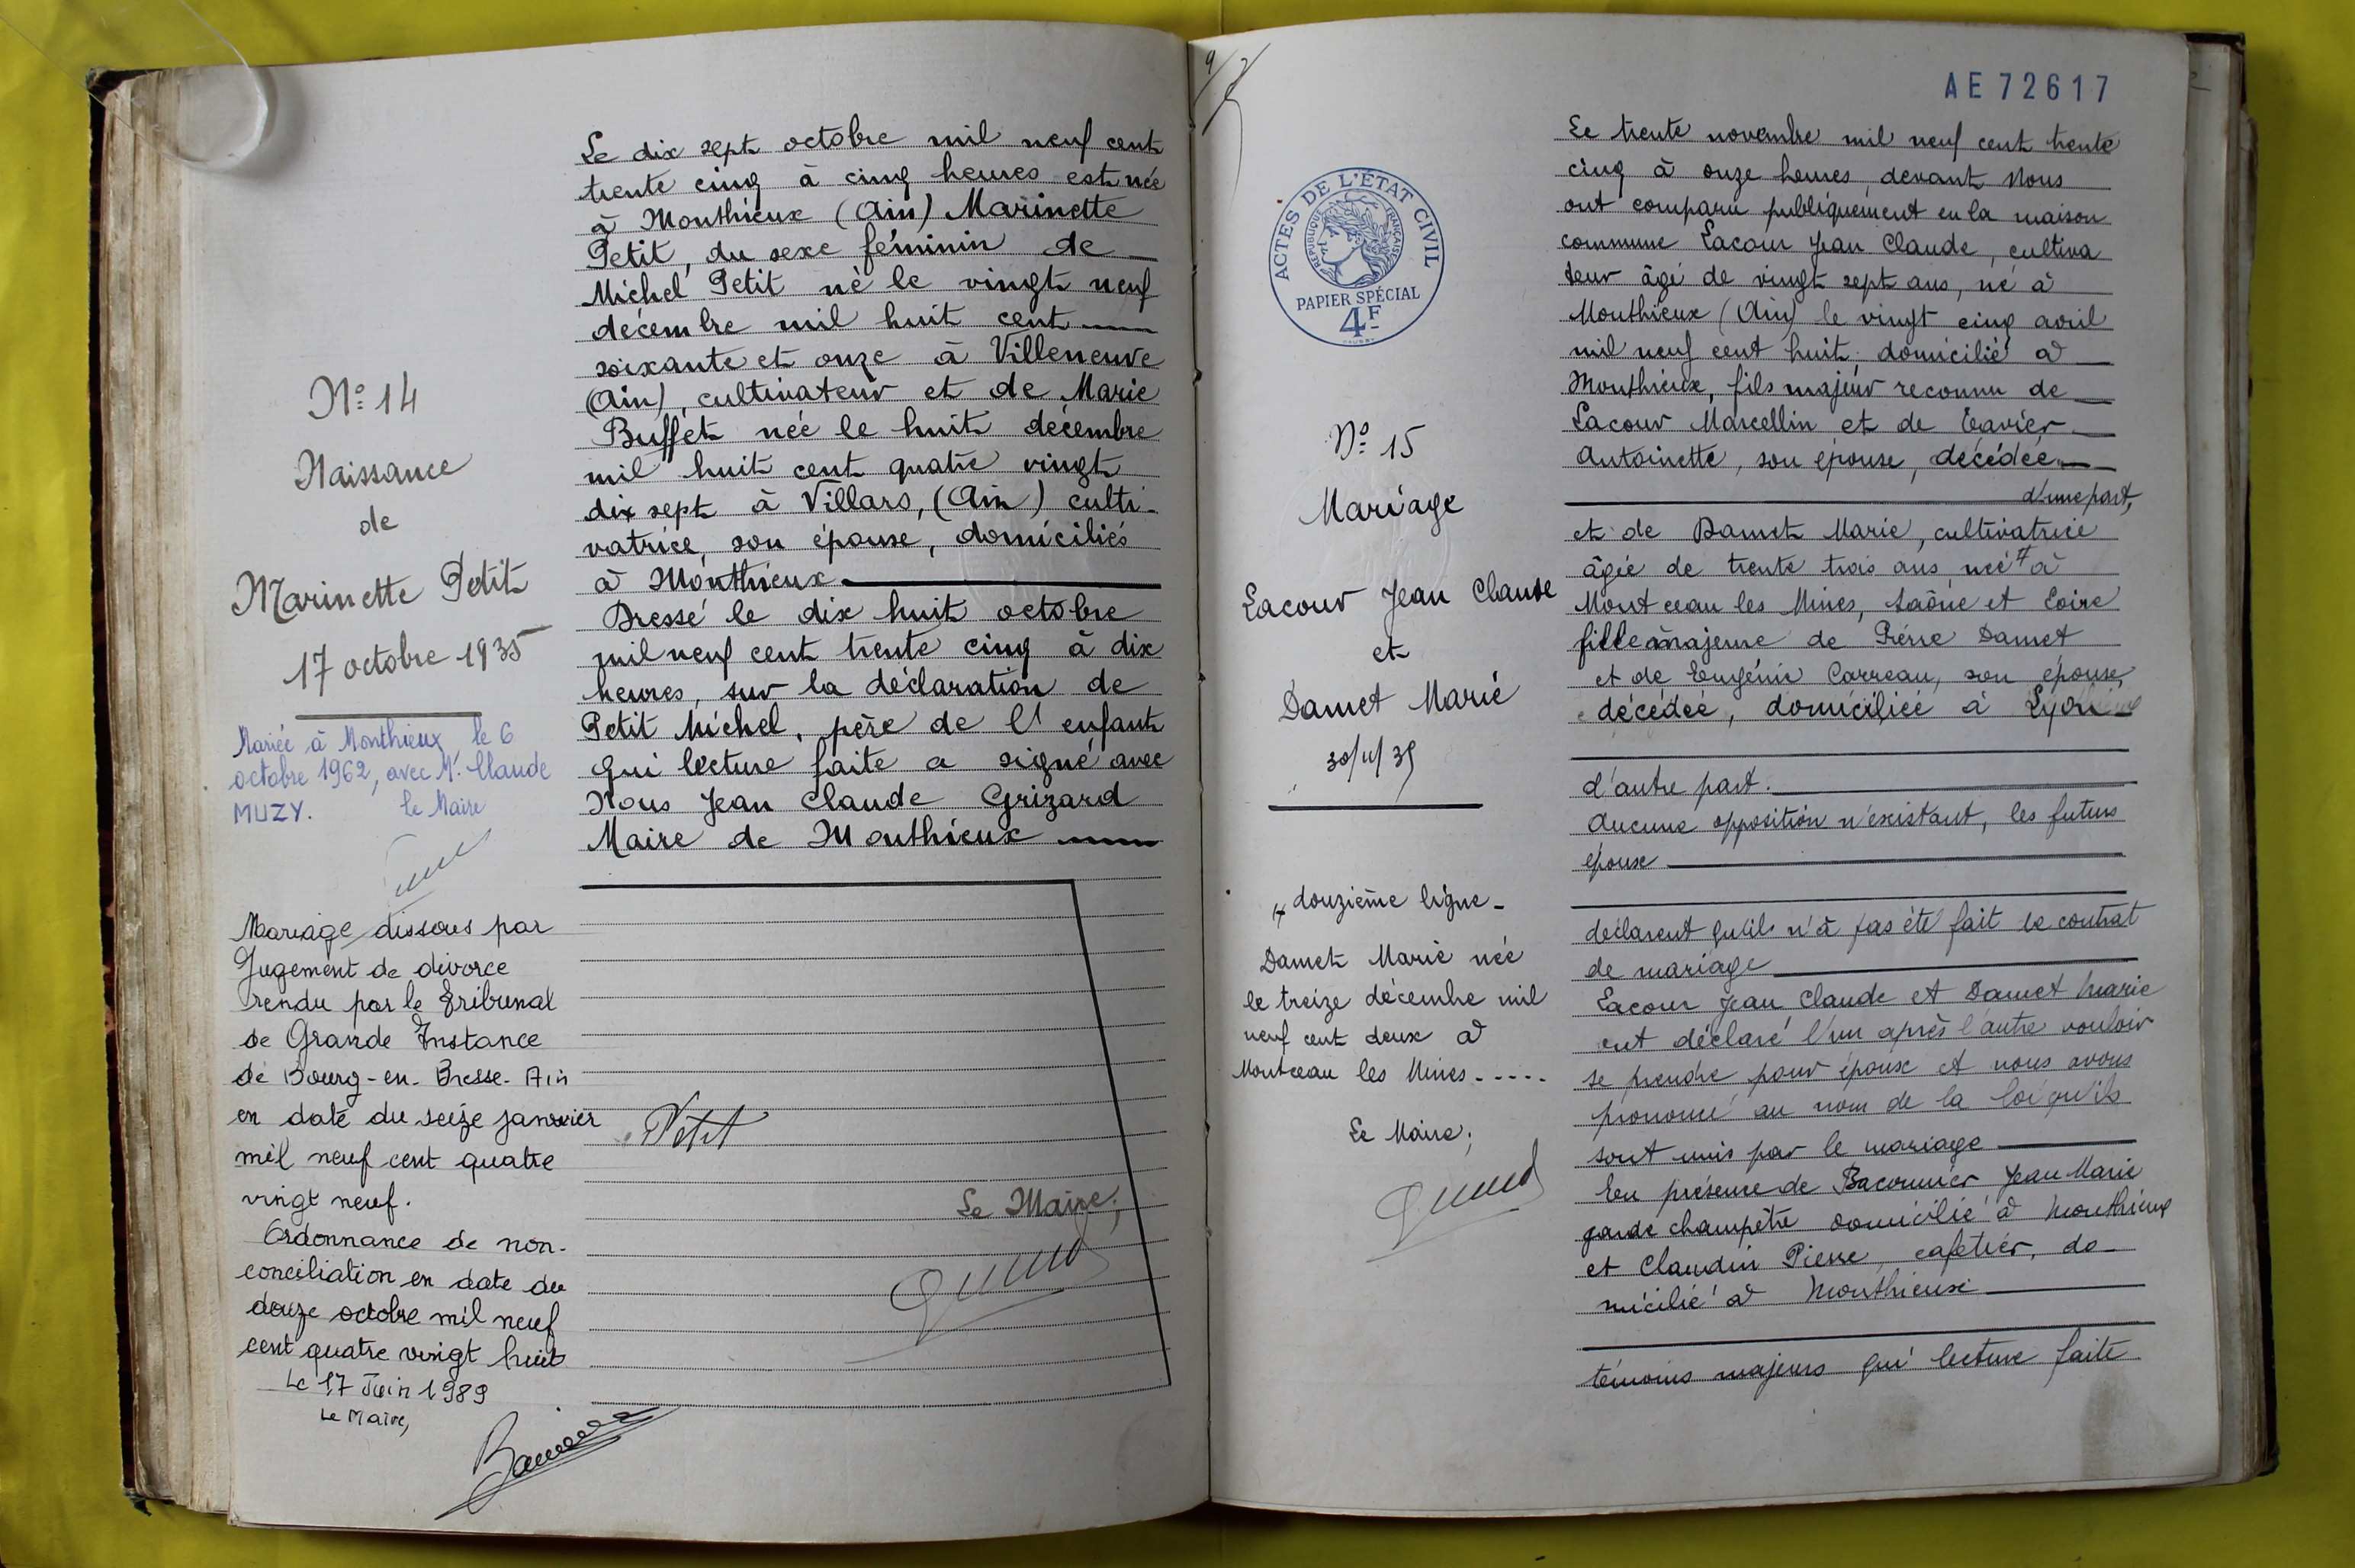 N° 14
Naissance
de
Marinette Petit
17 octobre 1935
Mariée à Monthieux, le 6
octobre 1962, avec Mr. Claude
MUZY. le Maire
Mariage dissous par
Jugement de divorce
rendu par le Tribunal
de Grande Instance
de Bourg-en-Bresse-Ain
en date du seize janvier
mil neuf cent quatre
vingt neuf.
Ordonnance de non-
conciliation en date du
douze octobre mil neuf
cent quatre vingt huit
Le 17 Juin 1989
Le Maire,
Le dix sept octobre mil neuf cent
trente cinq à cinq heures est née
à Monthieux (Ain) Marinette
Petit, du sexe féminin de
Michel Petit né le vingt neuf
décembre mil huit cent
soixante et onze à Villeneuve
(Ain), cultivateur et de Marie
Buffet née le huit décembre
mil huit cent quatre vingt
dix sept à Villars, (Ain) culti-
vatrice, son épouse, domiciliés
à Monthieux
Dressé le dix huit octobre
mil neuf cent trente cinq à dix
heures, sur la déclaration de
Petit Michel, père de l'enfant
qui lecture faite a signé avec
Nous Jean Claude Grizard
Maire de Monthieux
Petit
Le Maire;
AE 72617
ACTES DE L'ÉTAT CIVIL
RÉPUBLIQUE FRANÇAISE
PAPIER SPÉCIAL
4F
N° 15
Mariage
Lacour Jean Claude
et
Damet Marie
30/11/35
douzième ligne-
Damet Marie née
le treize décembre mil
neuf cent deux à
Montceau les Mines-----
Le Maire;
Le trente novembre mil neuf cent trente
cinq à onze heures, devant Nous
ont comparu publiquement en la maison
commune Lacour Jean Claude, cultiva
teur âgé de vingt sept ans, né à
Monthieux (Ain) le vingt cinq avril
mil neuf cent huit domicilié à
Monthieux, fils majeur reconnu de
Lacour Marcellin et de Tavier
Antoinette, son épouse, décédée
d'une part,
et de Damet Marie, cultivatrice
âgée de trente trois ans, née à
Montceau les Mines, Saône et Loire
fille majeure de Pierre Damet
et de Eugénie Carreau, son épouse,
décédée, domiciliée à Lyon
d'autre part.
Aucune opposition n'existant, les futurs
époux
déclarent qu'ils n'à pas été fait de contrat
de mariage
Lacour Jean Claude et Damet Marie
ont déclaré l'un après l'autre vouloir
se prendre pour époux et nous avons
prononcé au nom de la loi qu'ils
sont unis par le mariage
En présence de Bacounier Jean Marie
garde champêtre domicilié à Monthieux
et Claudin Pierre, cafetier, do-
micilié à Monthieux
témoins majeurs qui lecture faite